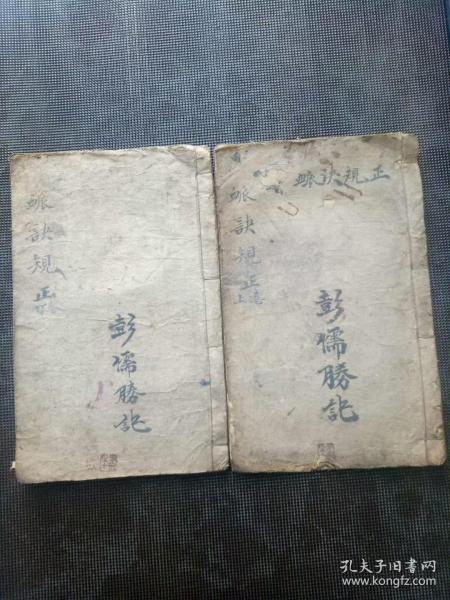 脈訣規正
彭儒勝記
脈訣規正
脈訣規正
上
彭儒勝記
孔夫子旧书网
www.kongfz.com